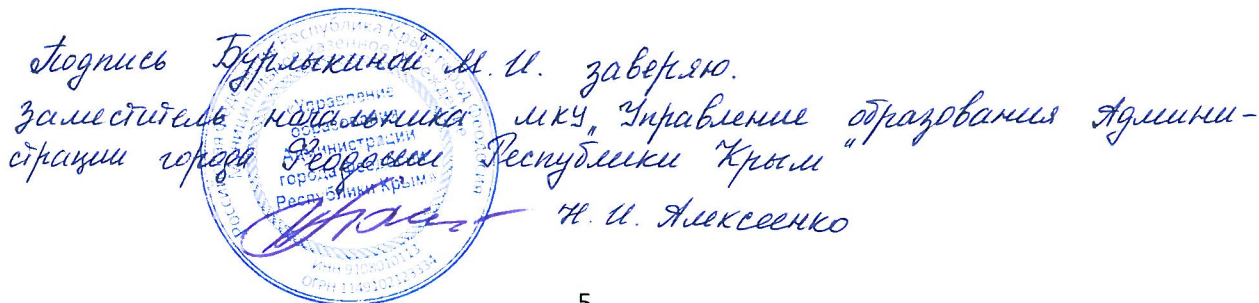 Подпись Бурлыкиной М.И. заверяю.
Заместитель начальника МКУ „Управление образования Админи-
страции города Феодосии Республики Крым"
Н.И. Алексеенко
Управление
образования
Администрации
города Феодосии
Республики Крым»
ОГРН
5